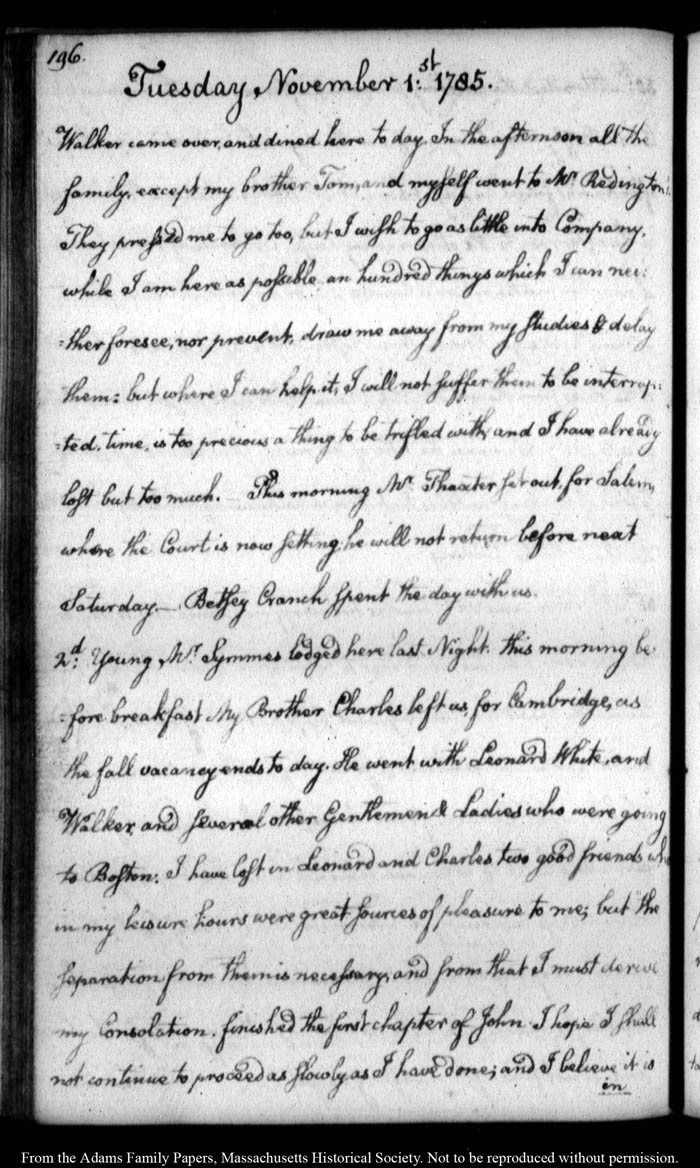 196.
Tuesday, November 1:st 1785.
Walker came over, and dined here to day. In the afternoon all the
family, except my brother Tom, and myself went to Mr Redington's
They press'd me to go too, but I wish to go as little into Company,
while I am here as possible. an hundred things which I can nei:
:ther foresee, nor prevent, draw me away from my studies & delay
them: but where I can help it, I will not suffer them to be interrup:
:ted. time, is too precious a thing to be trifled with, and I have already
lost but too much. — This morning Mr Thaxter set out, for Salem,
where the Court is now setting, he will not return before next
Saturday. — Betsey Cranch spent the day with us.
2d: Young Mr Symmes lodged here last Night. this morning be:
:fore breakfast My Brother Charles left us, for Cambridge, as
the fall vacancy ends to day. He went with Leonard White, and
Walker, and several other Gentlemen & Ladies who were going
to Boston. I have lost in Leonard and Charles two good friends who
in my leisure hours were great sources of pleasure to me; but the
separation from them is necessary, and from that I must derive
my Consolation. finished the first chapter of John. I hope I shall
not continue to proceed as slowly as I have done; and I believe it is
in
From the Adams Family Papers, Massachusetts Historical Society. Not to be reproduced without permission.